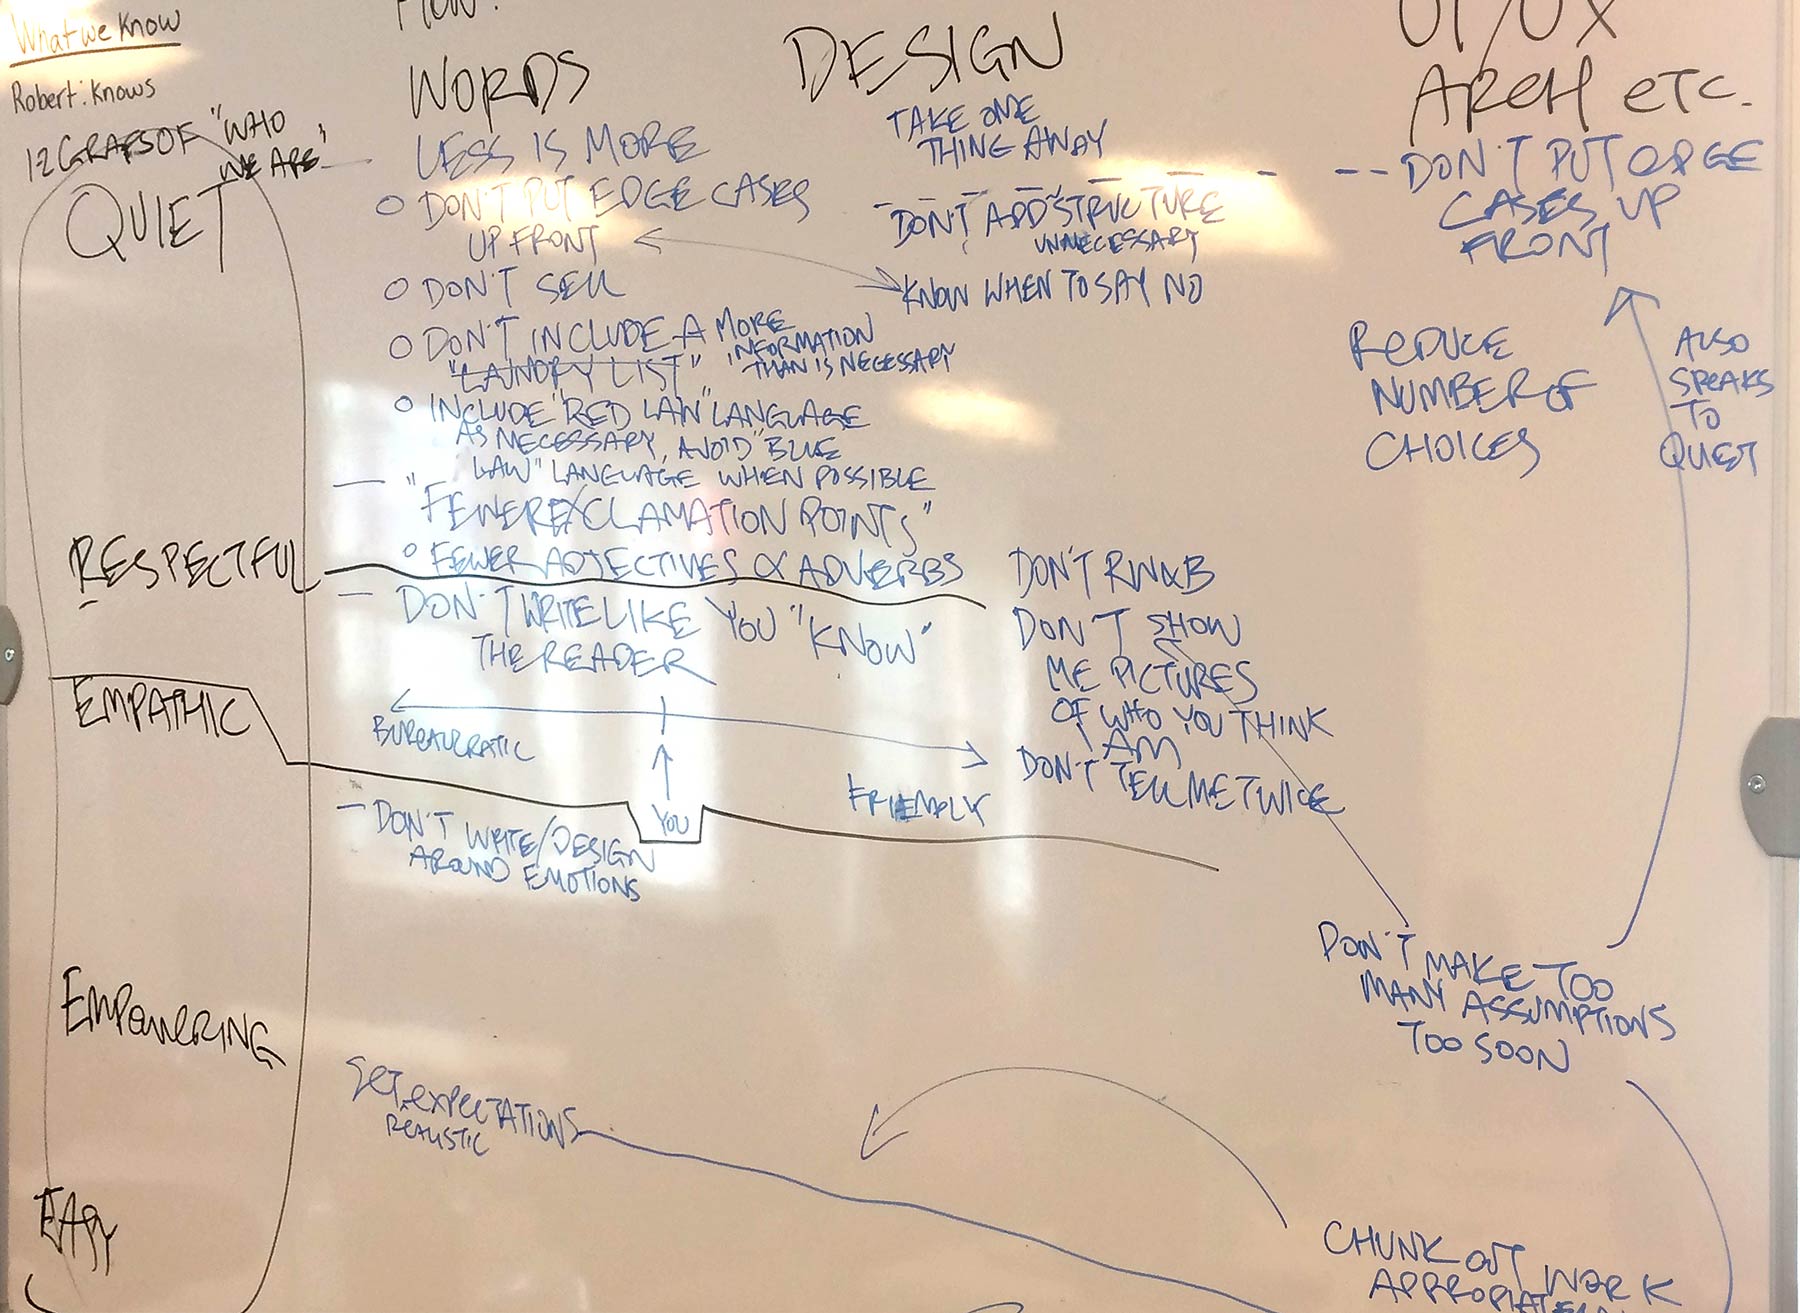 What we Know
Robert: Knows
12 GRAFS OF "WHO
WE ARE"
HOW?
WORDS
DESIGN
UI/UX
ARCH etc.
QUIET
RESPECTFUL
EMPATHIC
EMPOWERING
EASY
LESS IS MORE
DON'T PUT EDGE CASES
UP FRONT
DON'T SELL
DON'T INCLUDE A MORE
"LAUNDRY LIST" INFORMATION
THAN IS NECESSARY
INCLUDE "RED LAW" LANGUAGE
AS NECESSARY, AVOID "BLUE
LAW" LANGUAGE WHEN POSSIBLE
"FEWER EXCLAMATION POINTS"
FEWER ADJECTIVES & ADVERBS
DON'T WRITE LIKE YOU "KNOW"
THE READER
BUREAUCRATIC
FRIENDLY
YOU
- DON'T WRITE/DESIGN
AROUND EMOTIONS
SET EXPECTATIONS
REALISTIC
TAKE ONE
THING AWAY
DON'T ADD "STRUCTURE
UNNECESSARY
KNOW WHEN TO SAY NO
DON'T RW&B
DON'T SHOW
ME PICTURES
OF WHO YOU THINK
I AM
DON'T TELL ME TWICE
DON'T PUT EDGE
CASES UP
FRONT
REDUCE
NUMBER OF
CHOICES
ALSO
SPEAKS
TO
QUIET
DON'T MAKE TOO
MANY ASSUMPTIONS
TOO SOON
CHUNK OUT WORK